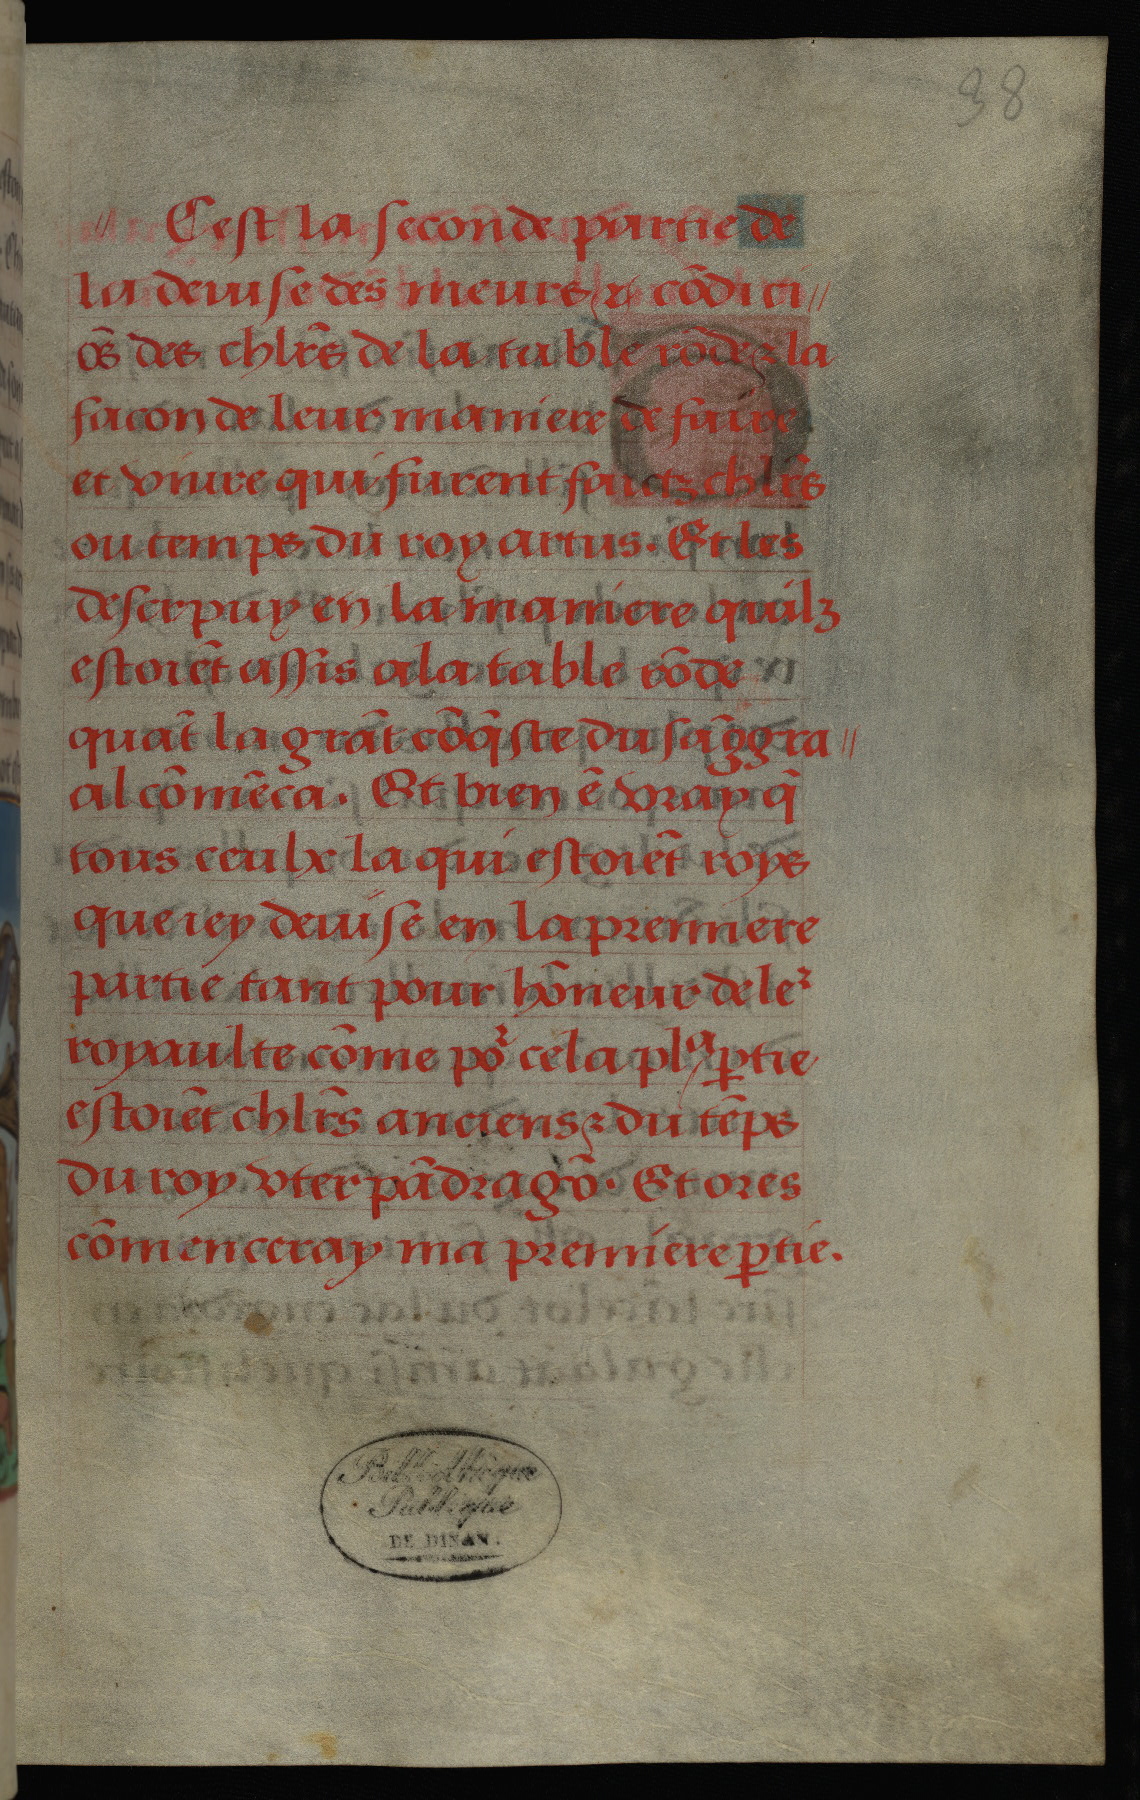 38
Cest la seconde partie de
la deuise des meurs & cõditi//
õs des chlr̃s de la table rõde & la
facon de leur maniere de faire
et viure qui furent faictz chlr̃s
ou temps du roy artus. Et les
descrpuy en la maniere quilz
estoiẽt assis a la table rõde
quãt la grãt cõq̃ste du sãggra//
al cõmẽca. Et bien ẽ vray q̃
tous ceulx la qui estoiẽt roys
que iey deuise en la premiere
partie tant pour hõneur de leᷣ
royaulte cõme poᷣ ce la plᵃ ꝑtie
estoiẽt chlr̃s anciens & du tẽps
du roy vter pãdragõ. Et ores
cõmenceray ma premiere ꝑtie.
Bibliothèque
Publique
DE DINAN.